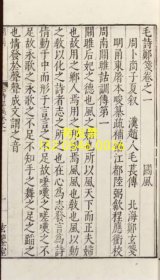 毛詩鄭箋卷之一　國風
周卜商子夏敘　漢趙人毛萇傳　北海鄭玄箋
明甬東屠本畯纂疏補協　江都陸弼
周南關雎詁訓傳第一
關雎后妃之德也風之始也所以風天下而正夫婦
也故用之鄉人焉用之邦國焉風風也教也風以動
之教以化之詩者志之所之也在心為志發言為詩
情動於中而形於言言之不足故嗟嘆之嗟嘆之不
足故永歌之永歌之不足不知手之舞之足之蹈之
也情發於聲聲成文謂之音